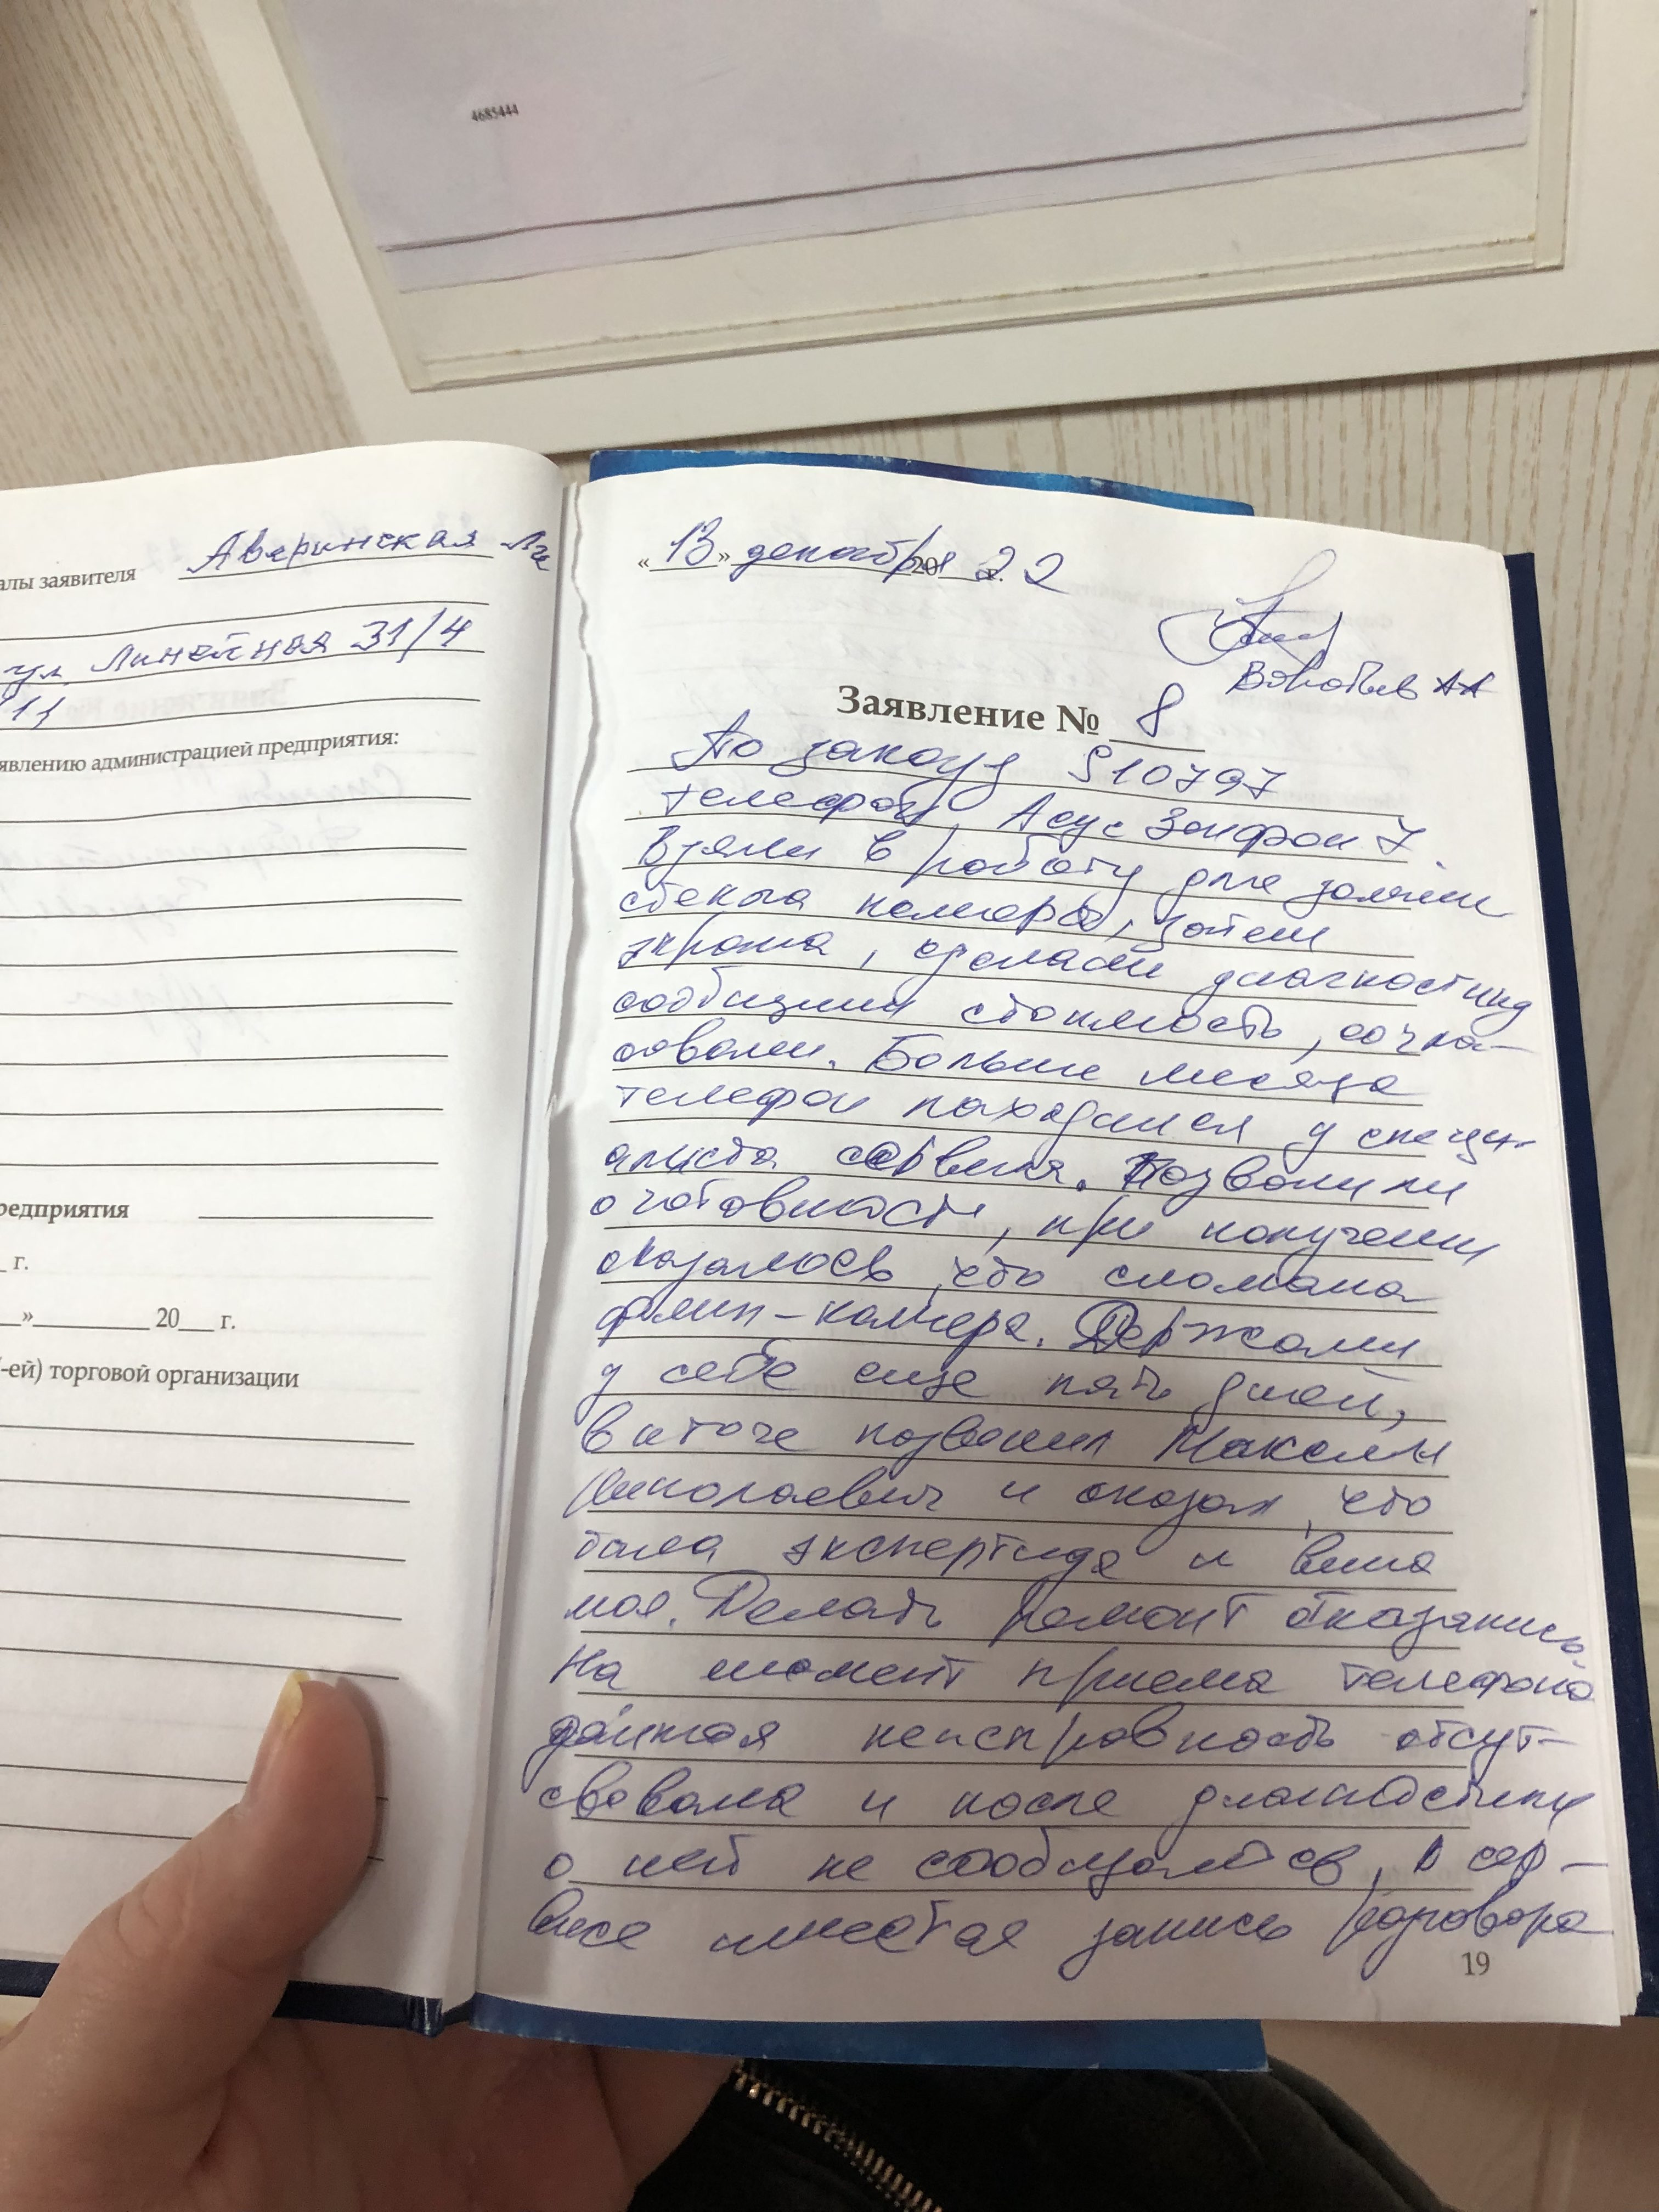 4685444
алы заявителя Аверинская
ул. Линейная 31/4
11
явлению администрацией предприятия:
редприятия
г.
» 20 г.
(-ей) торговой организации
« 13 » декабря 201 г. 22
Воробьев АА
Заявление № 8
По заказу S10797
телефон Асус Зенфон 7.
Взяли в работу для замены
стекла камеры, затем
экрана, сделали диагностику
сообщили стоимость, согла-
совали. Больше месяца
телефон находился у специ-
алиста сервиса. Позвонили
о готовности, при получении
оказалось, что сломана
флип-камера. Держали
у себя еще пять дней,
в итоге позвонил Максим
Николаевич и сказал, что
была экспертиза и вина
моя. Делать ремонт отказались
На момент приема телефона
данная неисправность отсут-
свовала и после диагностики
о ней не сообщалось, в сер-
висе имеется запись разговора
19